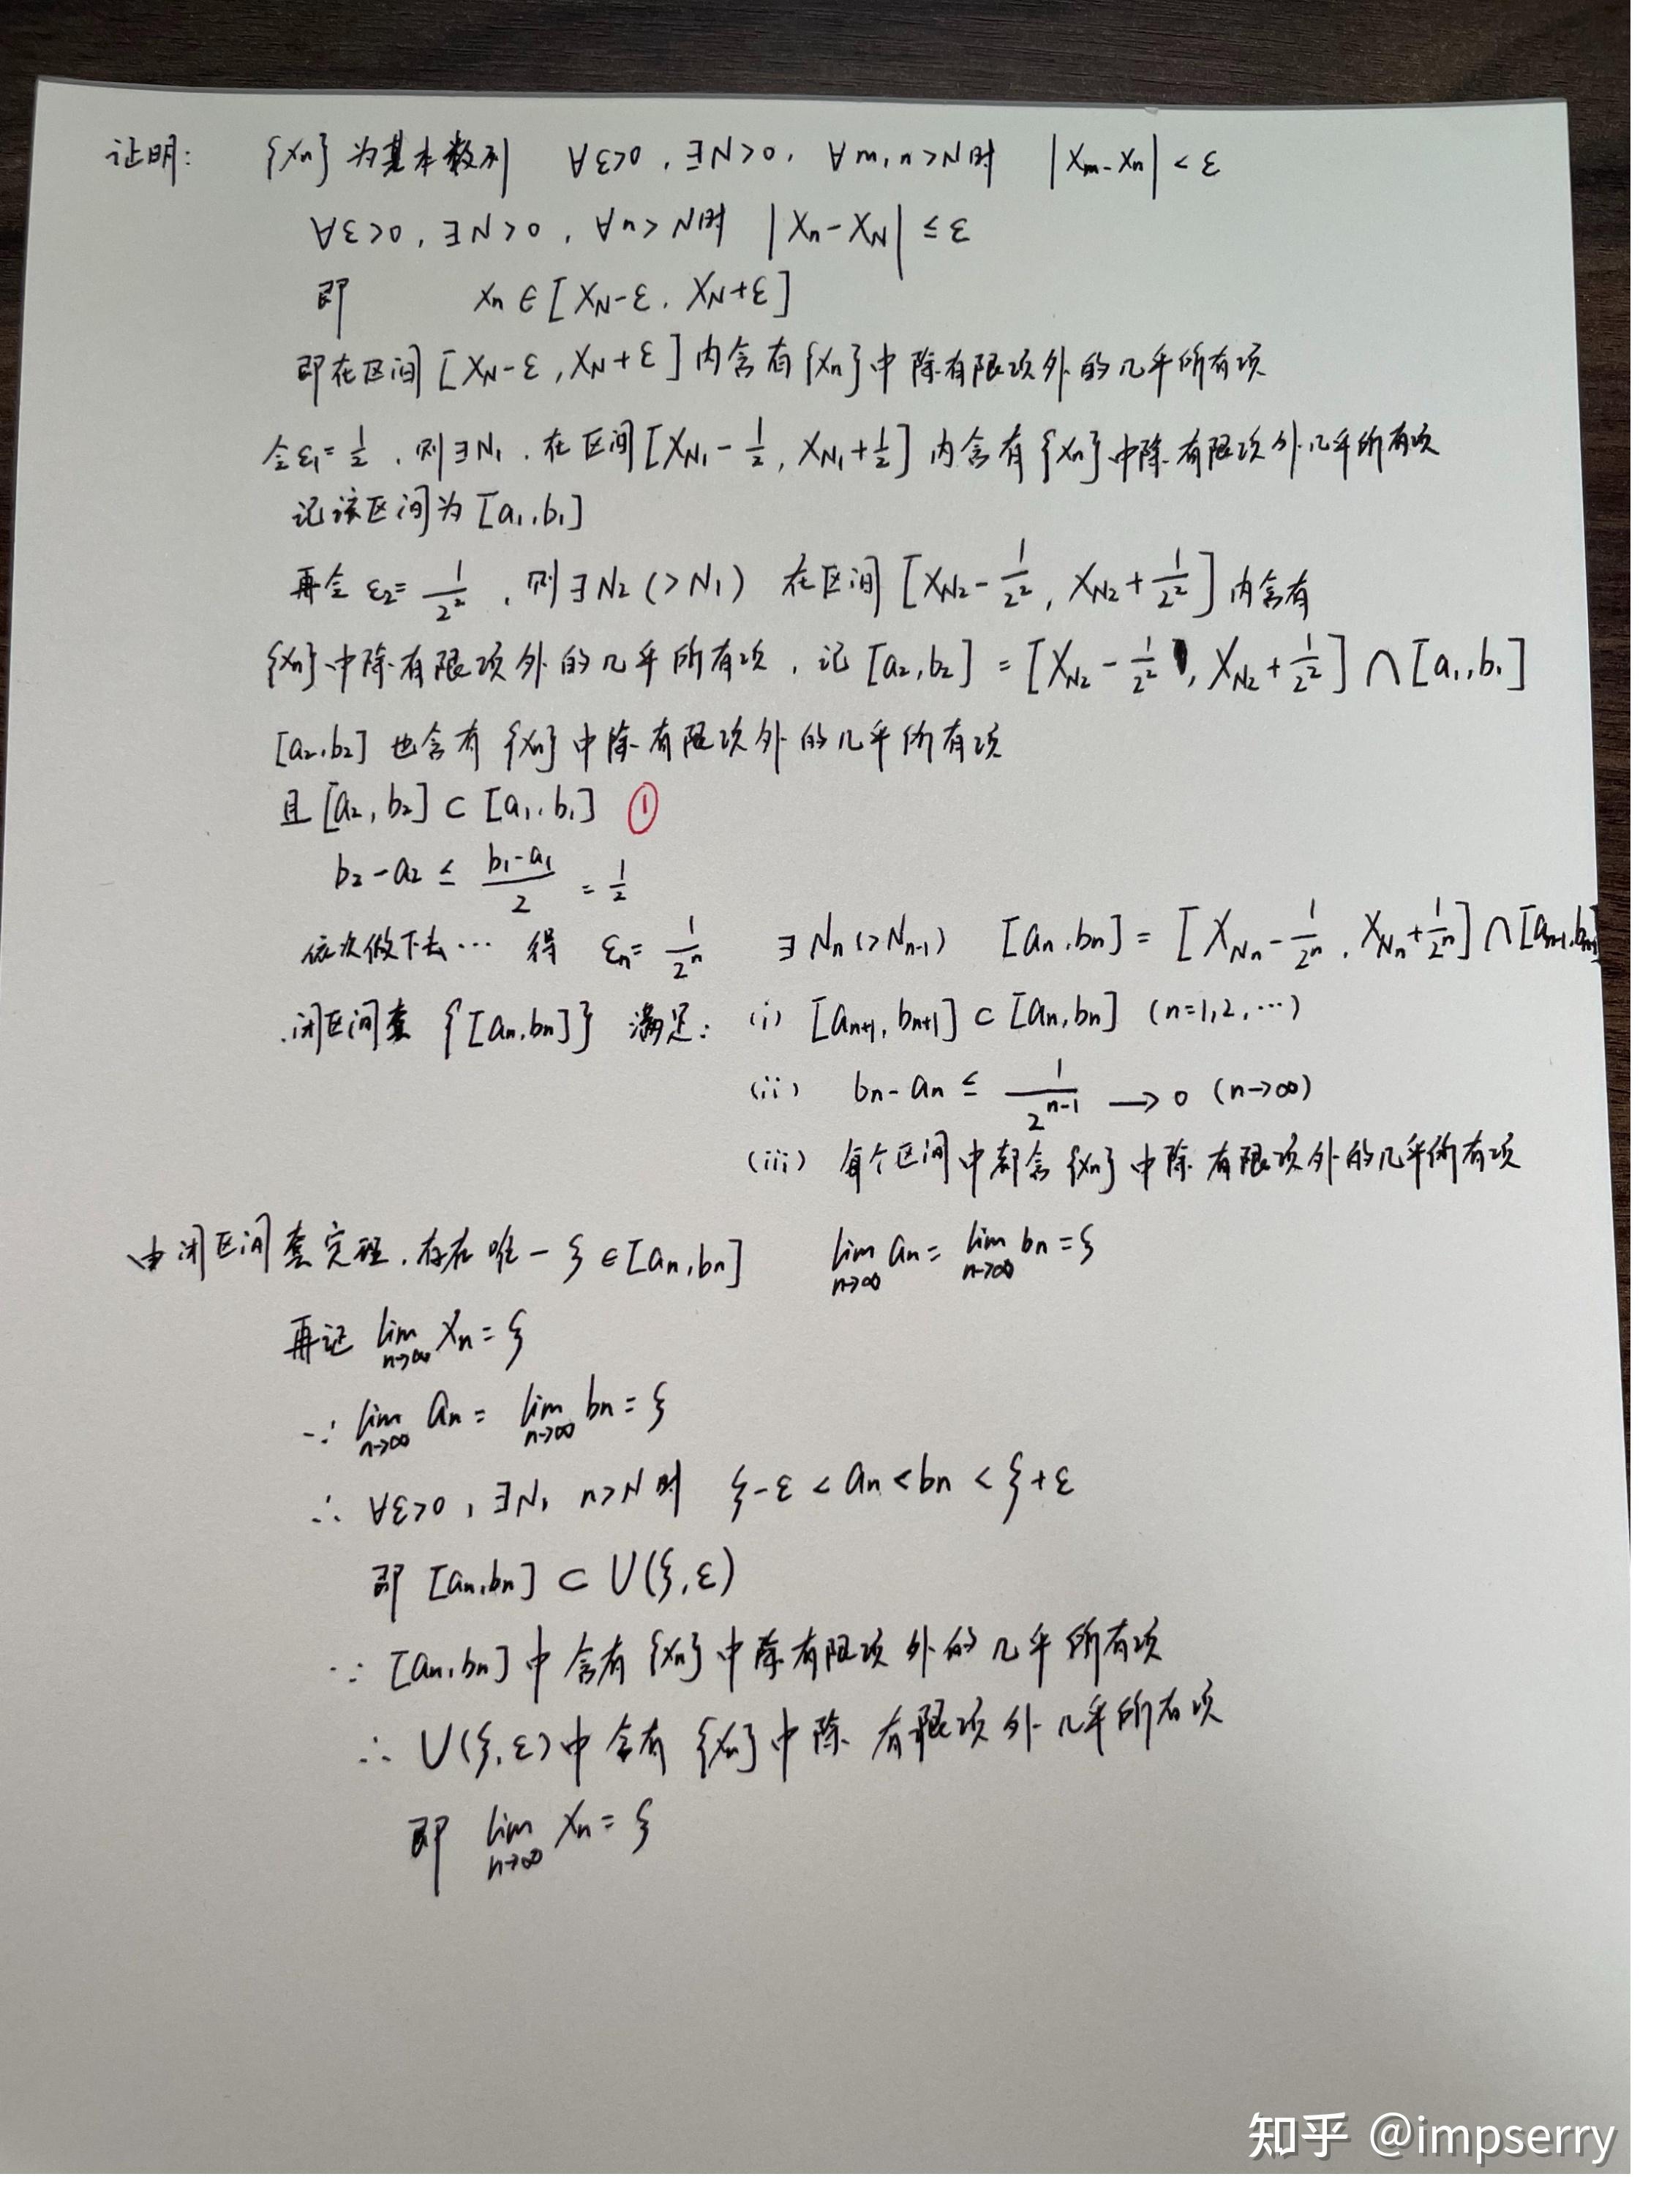 证明: {xn} 为基本数列 ∀ε>0, ∃N>0, ∀m,n>N时 |xm-xn|<ε
∀ε>0, ∃N>0, ∀n>N时 |xn-xN|≤ε
即 xn∈[xN-ε, xN+ε]
即在区间[xN-ε, xN+ε]内含有{xn}中除有限项外的几乎所有项
令ε1=1/2, 则∃N1, 在区间[xN1-1/2, xN1+1/2]内含有{xn}中除有限项外几乎所有项
记该区间为[a1,b1]
再令ε2=1/2², 则∃N2(>N1) 在区间[xN2-1/2², xN2+1/2²]内含有
{xn}中除有限项外的几乎所有项, 记[a2,b2]=[xN2-1/2², xN2+1/2²]∩[a1,b1]
[a2,b2]也含有{xn}中除有限项外的几乎所有项
且[a2,b2]⊂[a1,b1] ①
b2-a2≤(b1-a1)/2=1/2
依次做下去… 得 εn=1/2ⁿ ∃Nn(>Nn-1) [an,bn]=[xNn-1/2ⁿ, xNn+1/2ⁿ]∩[an-1,bn-1]
闭区间套{[an,bn]}满足: (i) [an+1,bn+1]⊂[an,bn] (n=1,2,…)
(ii) bn-an≤1/2ⁿ⁻¹→0 (n→∞)
(iii) 每个区间中都含{xn}中除有限项外的几乎所有项
由闭区间套定理, 存在唯一ξ∈[an,bn] lim n→∞ an=lim n→∞ bn=ξ
再证 lim n→∞ xn=ξ
∵ lim n→∞ an=lim n→∞ bn=ξ
∴ ∀ε>0, ∃N, n>N时 ξ-ε<an<bn<ξ+ε
即[an,bn]⊂U(ξ,ε)
∵ [an,bn]中含有{xn}中除有限项外的几乎所有项
∴ U(ξ,ε)中含有{xn}中除有限项外几乎所有项
即 lim n→∞ xn=ξ
知乎 @impserry